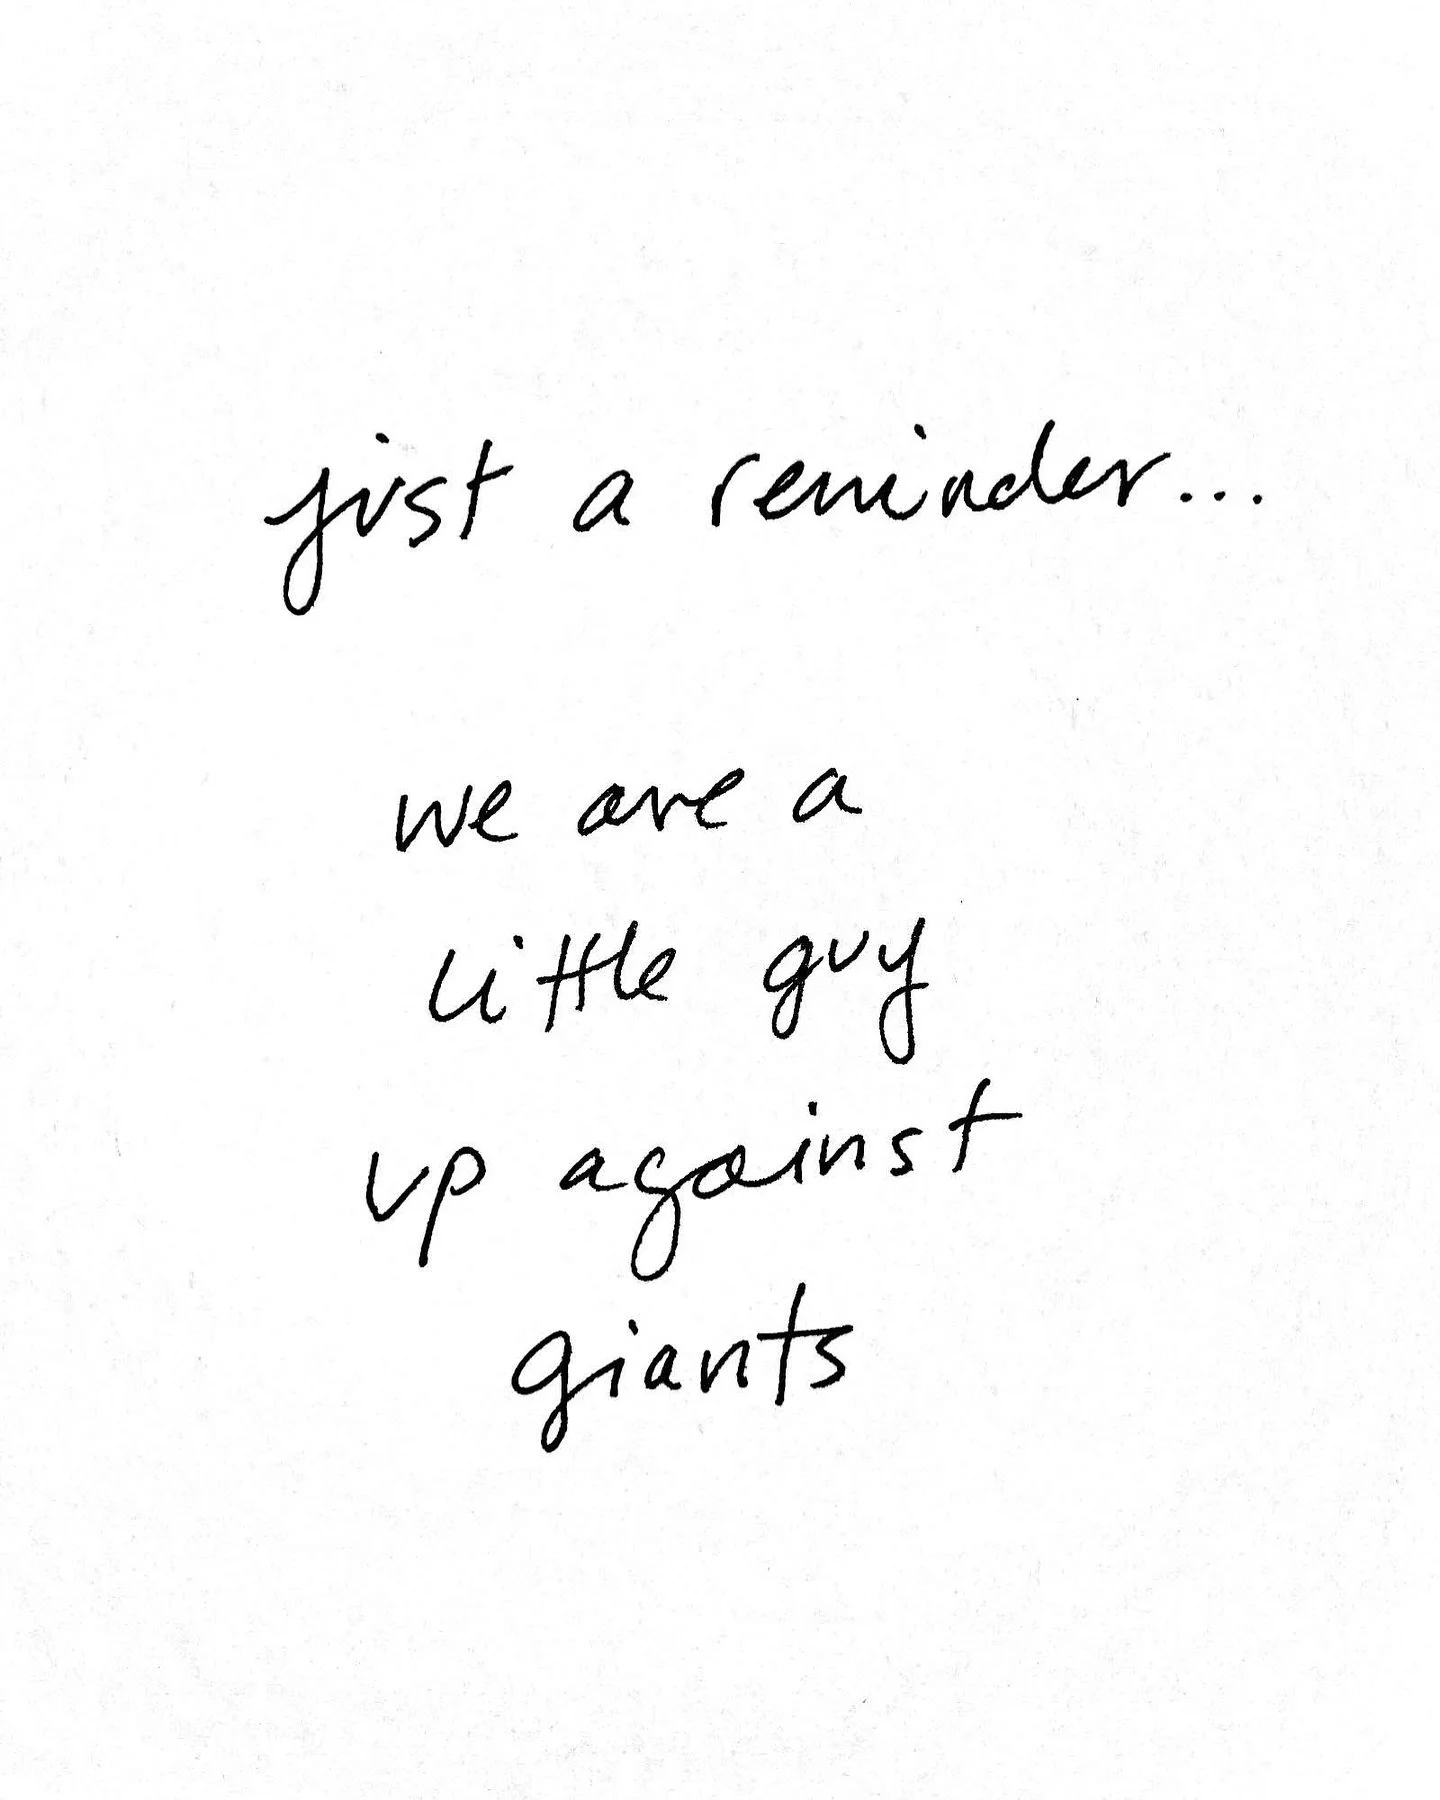 just a reminder...
we are a
little guy
up against
giants